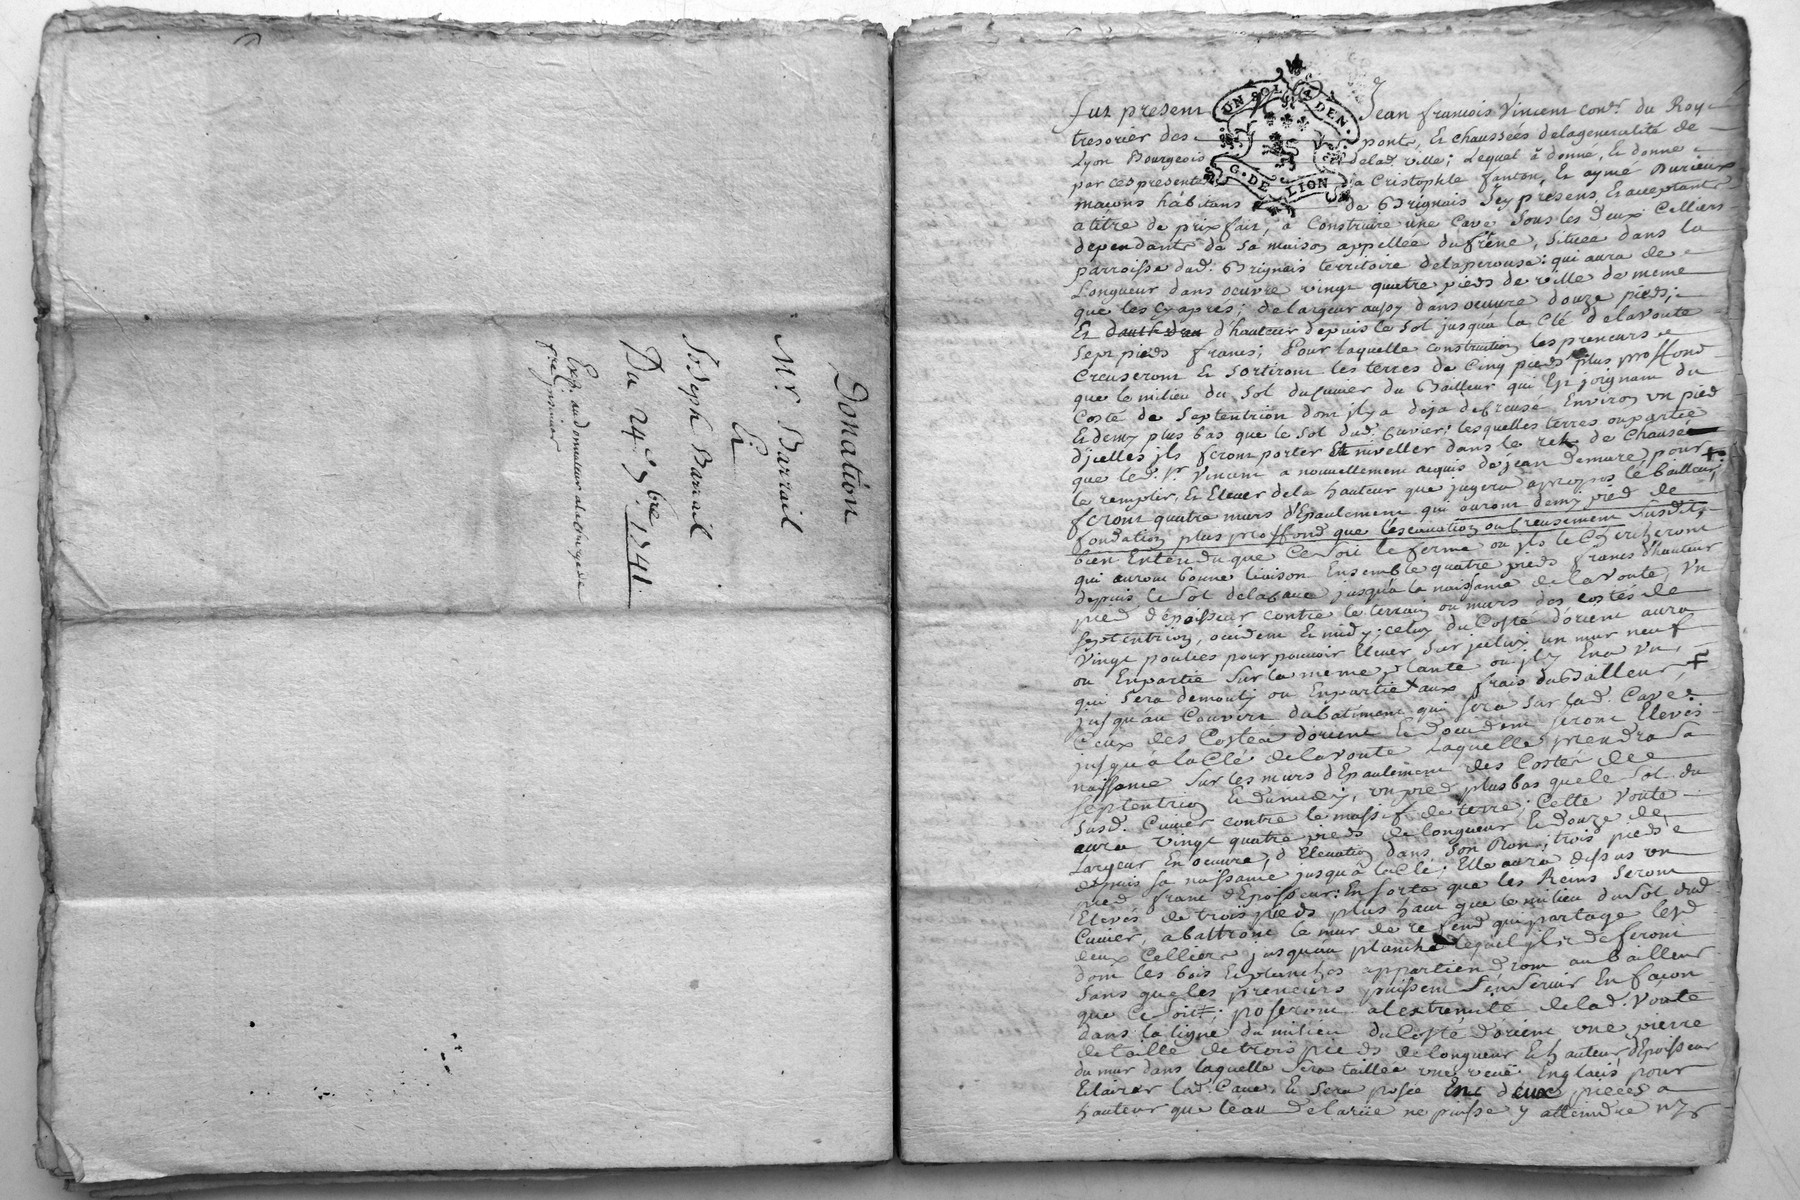 Donation
Mr. Barrail
à
Joseph Barrail
Du 24e 9bre 1741.
Exp. au donnateur
UN SOL 4 DEN.
G. DE LION
fut present Jean francois Vincent conер du Roy
tresorier des ponts, Et chaussées delageneralité de
Lyon Bourgeois delad. ville; Lequel à donné, Et donne
par ces presentes a Cristophle fanton, Et aymé Durieux
maçons habitans de Brignais Icy présens Et acceptants
a titre de prix fait, a Construire une Cave Sous les deux Celliers
dependants de Sa maison appellée du frêne, Située dans la
parroisse dud. Brignais territoire delaperouse: qui aura de
Longueur dans oeuvre vingt quatre pieds de ville de meme
que les Cy après; de largeur aussy dans oeuvre douze pieds;
Et d'hauteur depuis le Sol jusqu'à la Clé delavoute
Sept pieds francs; Pour laquelle construction les preneurs
Creuseront Et Sortiront les terres de Cinq pieds plus proffond
que le milieu du Sol du Cuvier du Bailleur qui Est joignant du
Costé de Septentrion dont il y a deja de Creusé Environ un pied
Et demy plus bas que le Sol dud. Cuvier; lesquelles terres ou partie
d'jcelles jls feront porter Et niveller dans le de Chaussée
que led. Sr. Vincent a nouvellement acquis de jean demare, pour
le remplir, Et Elever de la hauteur que jugera apropos le bailleur,
feront quatre murs d'Epaulement qui auront demy pied de
fondation plus proffond que l'Escavation ou Creusement Susdit,
bien Entendu que Ce Soit le ferme ou jls le Chercheront
qui auront bonne liaison Ensemble quatre pieds francs d'hauteur
depuis le Sol delaCave jusqu'à la naissance de la Voute, Un
pied d'Epoisseur contre le terrain ou murs des costés de
Septentrion, occident Et midy; celuy du Costé d'orient aura
Vingt pouces pour pouvoir Elever Sur jceluy un mur neuf
ou En partie Sur la meme plante ou jl y En a un,
qui Sera demoly ou En partie aux frais du Bailleur, +
jusqu'au Couvert du batiment qui Sera Sur lad. Cave:
Ceux des Costés d'orient Et d'occident Seront Elevés
jusqu'à la Clé delaVoute Laquelle prendra Sa
naissance Sur les murs d'Epaulement des Costés de
Septentrion Et dumidy, un pied plus bas que le Sol du
Susd. Cuvier contre le massif de terre; Cette Voute
aura vingt quatre pieds de longueur Et Douze de
Largeur En oeuvre, d'Elevation dans Son Ron, trois pieds
depuis sa naissance jusqu'à la Clé; Elle aura dessus un
pied franc d'Epoisseur: En Sorte que les Reins Seront
Elevés de trois pieds plus haut que le milieu du Sol dud.
Cuvier, abattront le mur de refend qui partage lesd.
deux Celliers jusqu'au planché lequel jls deferont
dont les bois Et planches appartiendront au bailleur
Sans que les preneurs puissent S'en Servir En façon
que Ce Soit; poseront a l'extremité de lad. Voute
dans la ligne du milieu du Costé d'orient une pierre
de taille de trois pieds de longueur Et hauteur d'Epoisseur
du mur dans laquelle Sera taillée une veuë En glacis pour
Eclairer lad. Cave, Et Sera posée En deux pieces a
hauteur que leau de la rüe ne puisse y atteindre ny